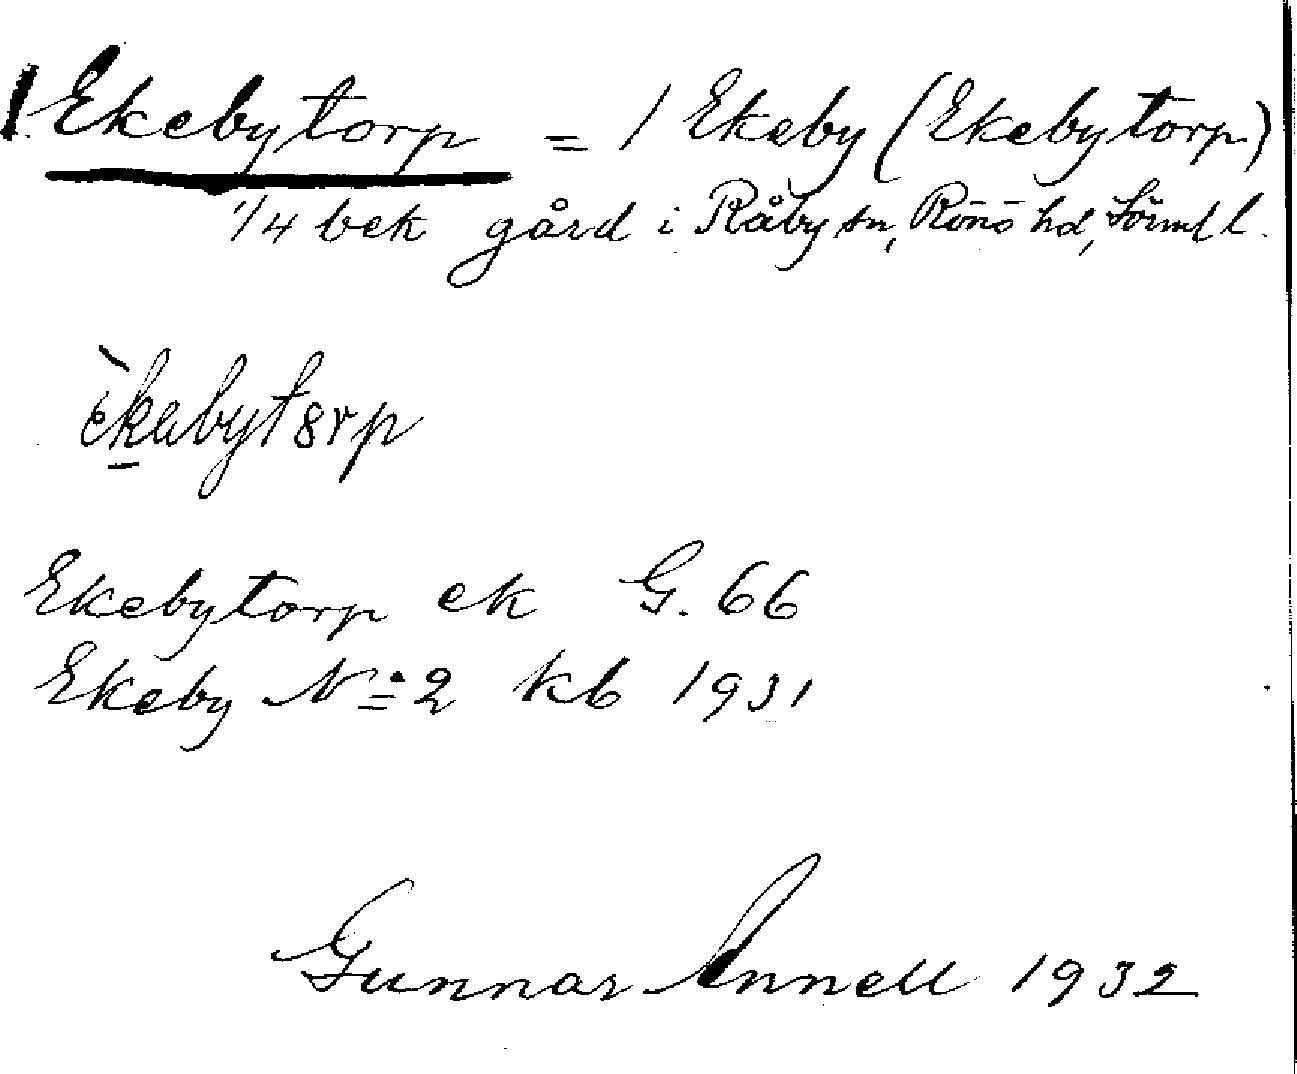 1 Ekebytorp = 1 Ekeby (Ekebytorp)
1/4 bek gård i Råby sn, Rönö hd, Sörml l.
Ekebytorp ek G. 66
Ekeby No 2 kb 1931
Gunnar Annell 1932